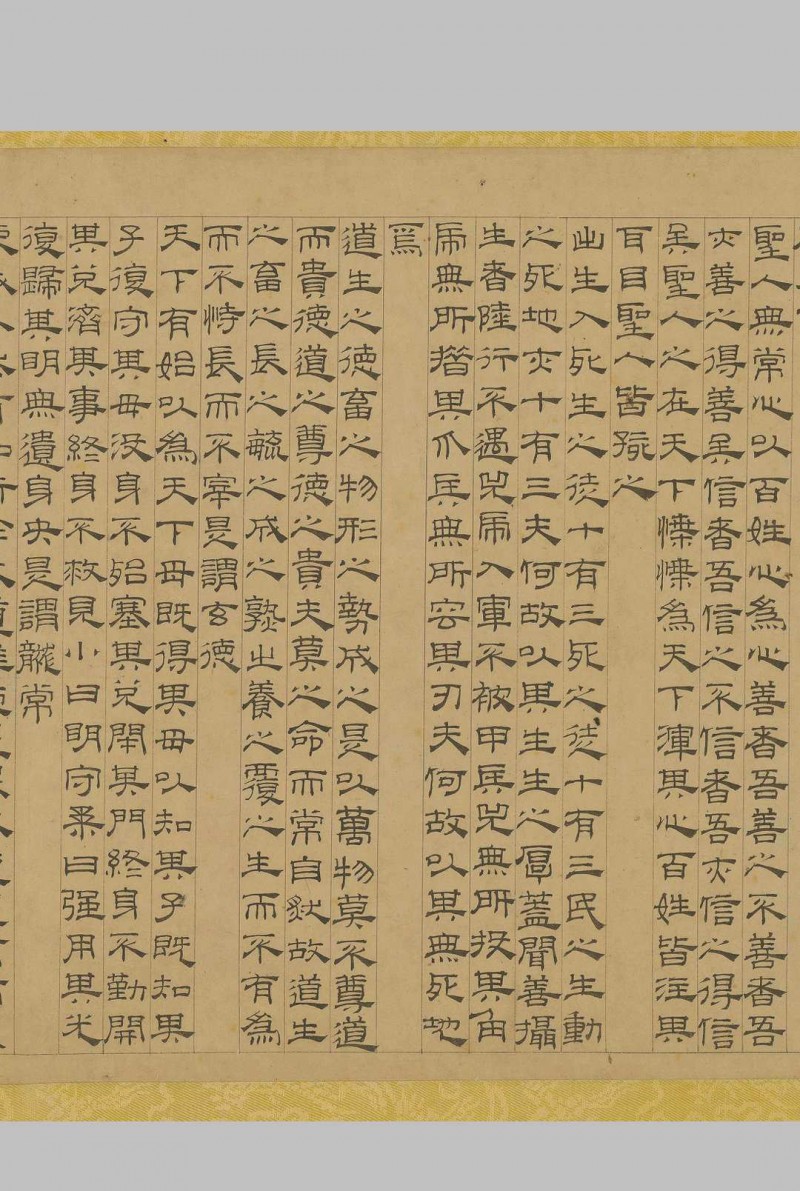 聖人無常心以百姓心為心善者吾善之不善者吾
亦善之得善矣信者吾信之不信者吾亦信之得信
矣聖人之在天下惵惵為天下渾其心百姓皆注其
耳目聖人皆孩之
出生入死生之徒十有三死之徒十有三民之生動
之死地亦十有三夫何故以其生生之厚蓋聞善攝
生者陸行不遇兕虎入軍不被甲兵兕無所投其角
虎無所措其爪兵無所容其刃夫何故以其無死地
焉
道生之德畜之物形之勢成之是以萬物莫不尊道
而貴德道之尊德之貴夫莫之命而常自然故道生
之畜之長之毓之成之熟之養之覆之生而不有為
而不恃長而不宰是謂玄德
天下有始以為天下母既得其母以知其子既知其
子復守其母没身不殆塞其兌閉其門終身不勤開
其兌濟其事終身不救見小曰明守柔曰强用其光
復歸其明無遺身央是謂襲常